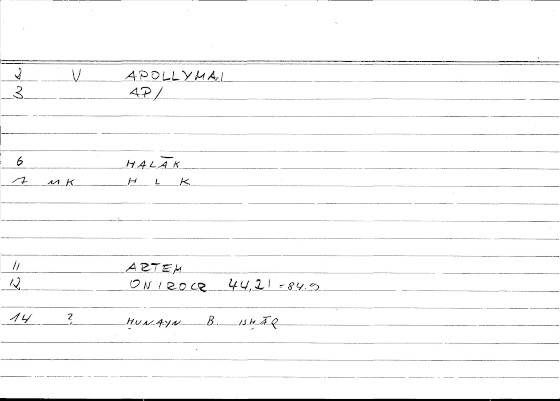 2 V APOLLYMAI
3 AP/
6 HALĀK
7 MK H L K
11 ARTEM
12 ONIROCR 44,21 = 84.9
14 ? ḤUNAYN B. ISḤĀQ